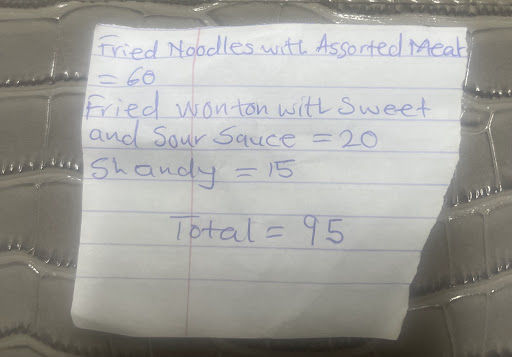 Fried Noodles with Assorted Meat
= 60
Fried wonton with Sweet
and Sour Sauce = 20
Shandy = 15
Total = 95